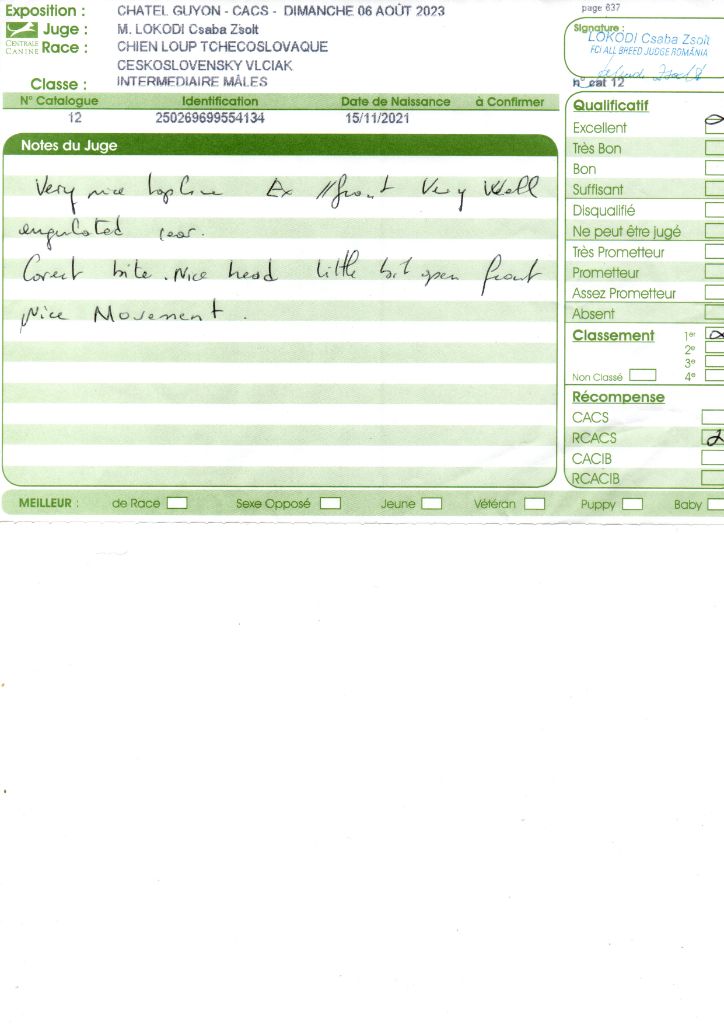 Exposition : CHATEL GUYON - CACS - DIMANCHE 06 AOÛT 2023
page 637
Juge : M. LOKODI Csaba Zsolt
CENTRALE CANINE
Race : CHIEN LOUP TCHECOSLOVAQUE
CESKOSLOVENSKY VLCIAK
Classe : INTERMEDIAIRE MÂLES
Signature :
LOKODI Csaba Zsolt
FCI ALL BREED JUDGE ROMÂNIA
n° cat 12
N° Catalogue Identification Date de Naissance à Confirmer
12 250269699554134 15/11/2021
Notes du Juge
Very nice topline Ex front Very Well
angulated rear.
Corect bite. Nice head little bit open front
Nice Movement.
Qualificatif
Excellent
Très Bon
Bon
Suffisant
Disqualifié
Ne peut être jugé
Très Prometteur
Prometteur
Assez Prometteur
Absent
Classement 1er
2e
3e
Non Classé 4e
Récompense
CACS
RCACS
CACIB
RCACIB
MEILLEUR : de Race Sexe Opposé Jeune Vétéran Puppy Baby